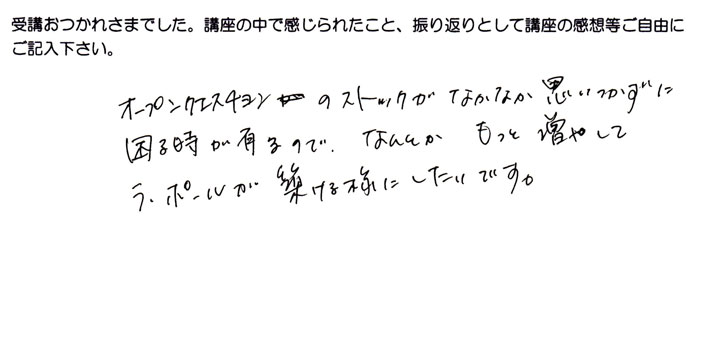 受講おつかれさまでした。講座の中で感じられたこと、振り返りとして講座の感想等ご自由に
ご記入下さい。
オープンクエスチョンのストックがなかなか思いつかずに
困る時が有るので、なんとか もっと増やして
ラ・ポールが築ける様にしたいです。